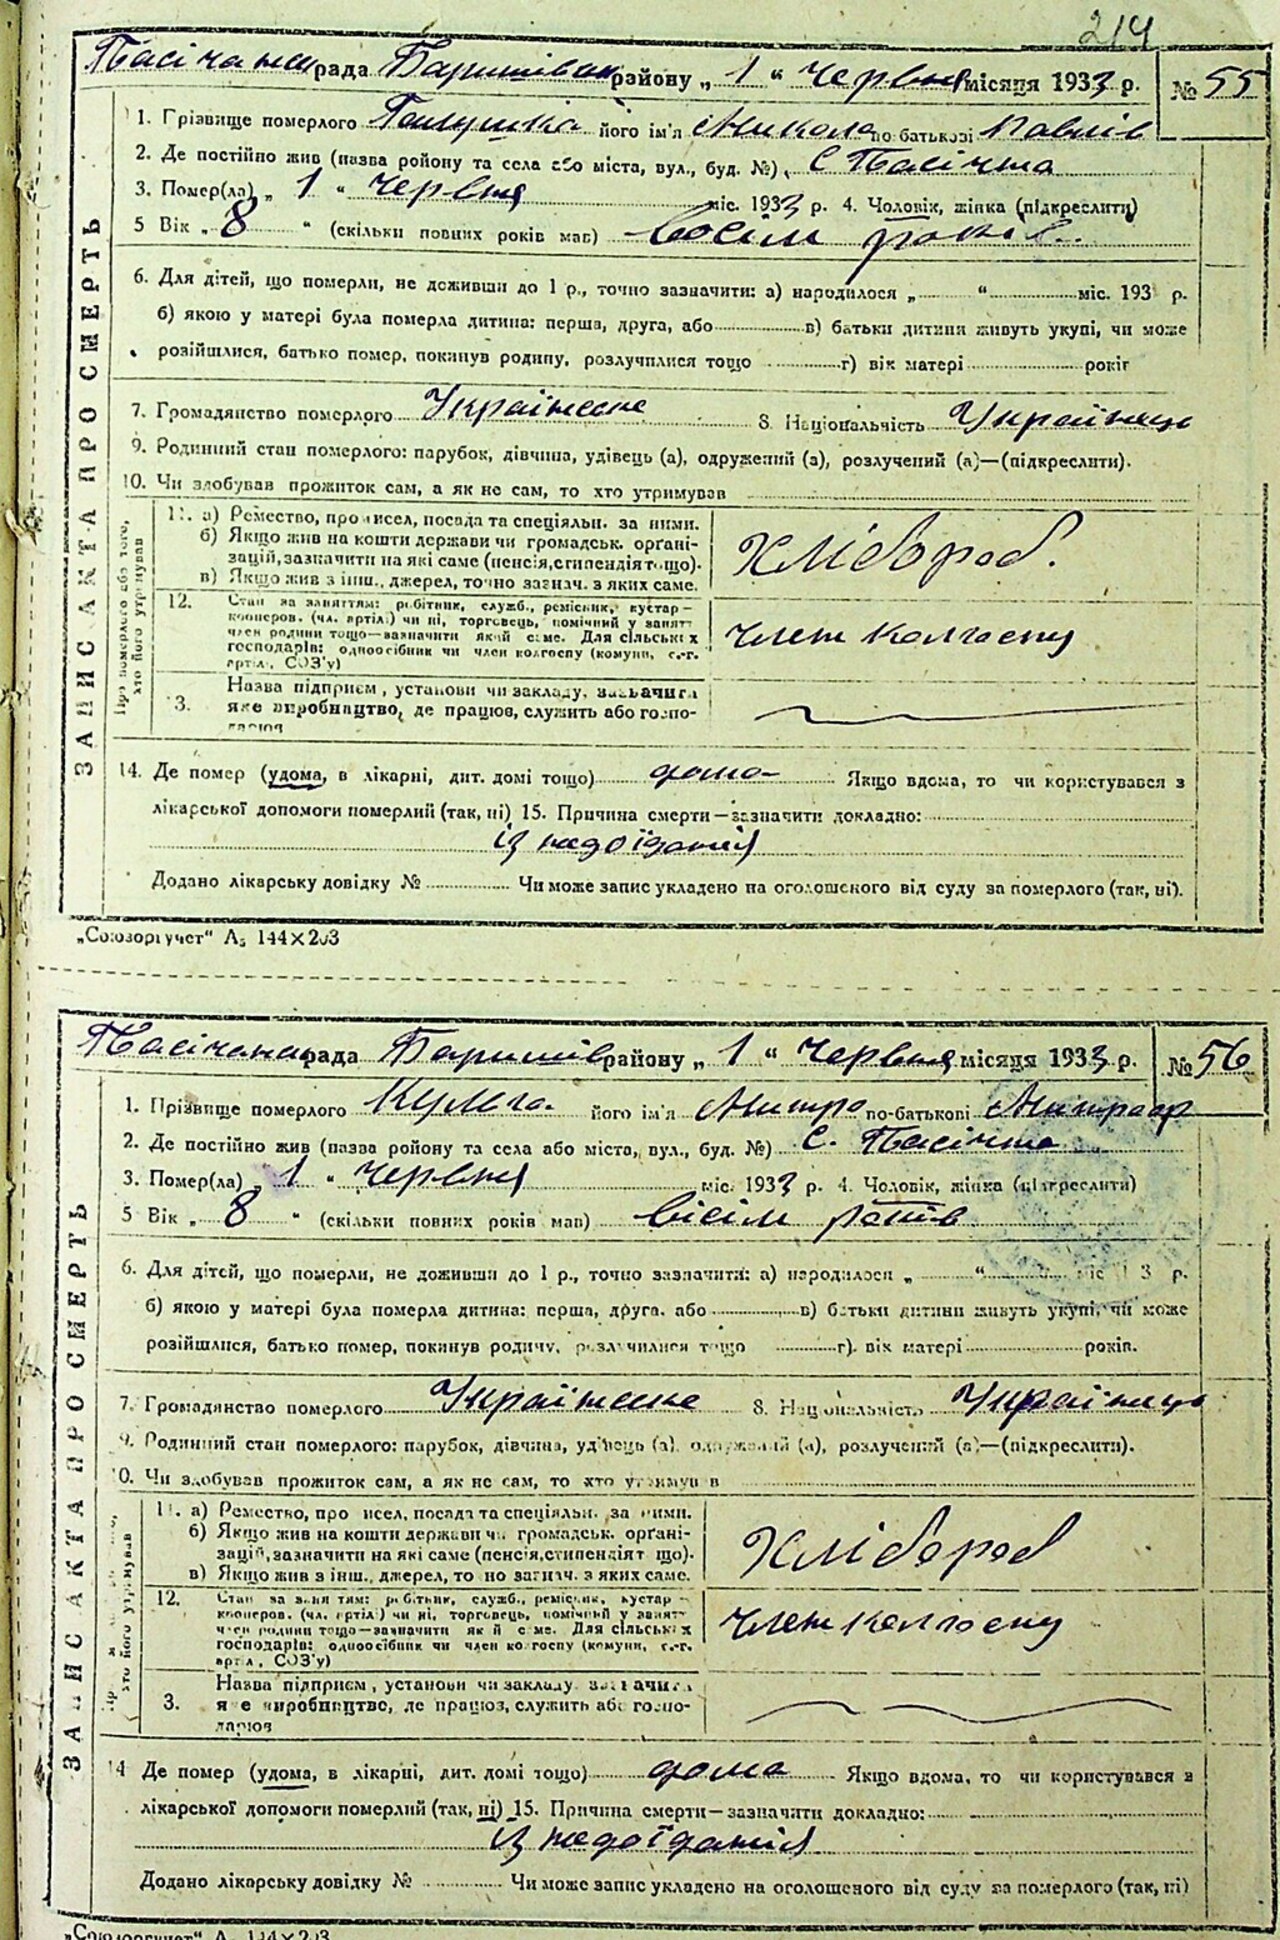 214
Пасічнян рада Баришівськ району „ 1 “ Червня місяця 1933 р. № 55
ЗАПИС АКТА ПРО СМЕРТЬ
1. Прізвище померлого Галушка його ім'я Микола по батькові Павлів
2. Де постійно жив (назва ройону та села або міста, вул., буд. №) С Пасічна
3. Помер(ла) „ 1 “ Червня міс. 1933 р. 4. Чоловік, жінка (підкреслити)
5 Вік „ 8 “ (скільки повних років мав) Восім років
6. Для дітей, що померли, не доживши до 1 р., точно зазначити: а) народилося „ “ міс. 193 р.
б) якою у матері була померла дитина: перша, друга, або в) батьки дитини живуть укупі, чи може
розійшлися, батько помер, покинув родину, розлучилися тощо г) вік матері рокіг
7. Громадянство померлого Українське 8. Національність Українець
9. Родинний стан померлого: парубок, дівчина, удівець (а), одружений (а), розлучений (а)—(підкреслити).
10. Чи здобував прожиток сам, а як не сам, то хто утримував
Про померлого або того, хто його утримував
11. а) Ремество, промисел, посада та спеціяльн. за ними.
б) Якщо жив на кошти держави чи громадськ. орґані-
зацій, зазначити на які саме (пенсія, стипендія тощо).
в) Якщо жив з інш., джерел, точно зазнач. з яких саме.
Хлібороб.
12. Стан за заняттям: робітник, служб., ремісник, кустар —
кооперов. (чл. артілі) чи ні, торговець, помічний у занятт
член родини тощо—зазначити який саме. Для сільських
господарів: одноосібник чи член колгоспу (комуни, с.-г.
артілі, СОЗ'у)
Член колгоспу
3. Назва підприєм, установи чи закладу, зазначити
яке виробництво, де працює, служить або госпо-
дарює
14. Де помер (удома, в лікарні, дит. домі тощо) дома Якщо вдома, то чи користувався з
лікарської допомоги померлий (так, ні) 15. Причина смерти—зазначити докладно:
із недоїдання
Додано лікарську довідку № Чи може запис укладено на оголошеного від суду за померлого (так, ні).
„Союзоргучет“ А5 144×203
Пасічнян рада Баришів району „ 1 “ Червня місяця 1933 р. № 56
ЗАПИС АКТА ПРО СМЕРТЬ
1. Прізвище померлого його ім'я Митро по-батькові
2. Де постійно жив (назва ройону та села або міста, вул., буд. №) С. Пасічна
3. Помер(ла) „ 1 “ Червня міс. 1933 р. 4. Чоловік, жінка (підкреслити)
5 Вік „ 8 “ (скільки повних років мав) Вісім років
6. Для дітей, що померли, не доживши до 1 р., точно зазначити: а) народилося „ “ міс 1 3 р.
б) якою у матері була померла дитина: перша, друга. або в) батьки дитини живуть укупі, чи може
розійшлися, батько помер, покинув родину, розлучилися тощо г). вік матері років.
7. Громадянство померлого Українське 8. Національність Українець
9. Родинний стан померлого: парубок, дівчина, удівець (а), одружений (а), розлучений (а)—(підкреслити).
0. Чи здобував прожиток сам, а як не сам, то хто утримував
хто його утримував
11. а) Ремество, про исел, посада та спеціяльн. за ними.
б) Якщо жив на кошти держави чи громадськ. орґані-
зацій, зазначити на які саме (пенсія, стипендіят що).
в) Якщо жив з інш., джерел, то но зазнач. з яких саме.
Хлібороб
12. Стан за заняттям: робітник, служб., ремісник, кустар —
кооперов. (чл. артілі) чи ні, торговець, помічний у занятт
член родини тощо—зазначити який саме. Для сільських
господарів: одноосібник чи член колгоспу (комуни, с.-г.
артіл, СОЗ'у)
Член колгоспу
3. Назва підприєм, установи чи закладу зазначити
яке виробництво, де працює, служить або госпо-
дарює
14 Де помер (удома, в лікарні, дит. домі тощо) дома Якщо вдома, то чи користувався з
лікарської допомоги померлий (так, ні) 15. Причина смерти—зазначити докладно:
із недоїдання
Додано лікарську довідку № Чи може запис укладено на оголошеного від суду за померлого (так, ні)
„Союзоргучет“ А5 144×203